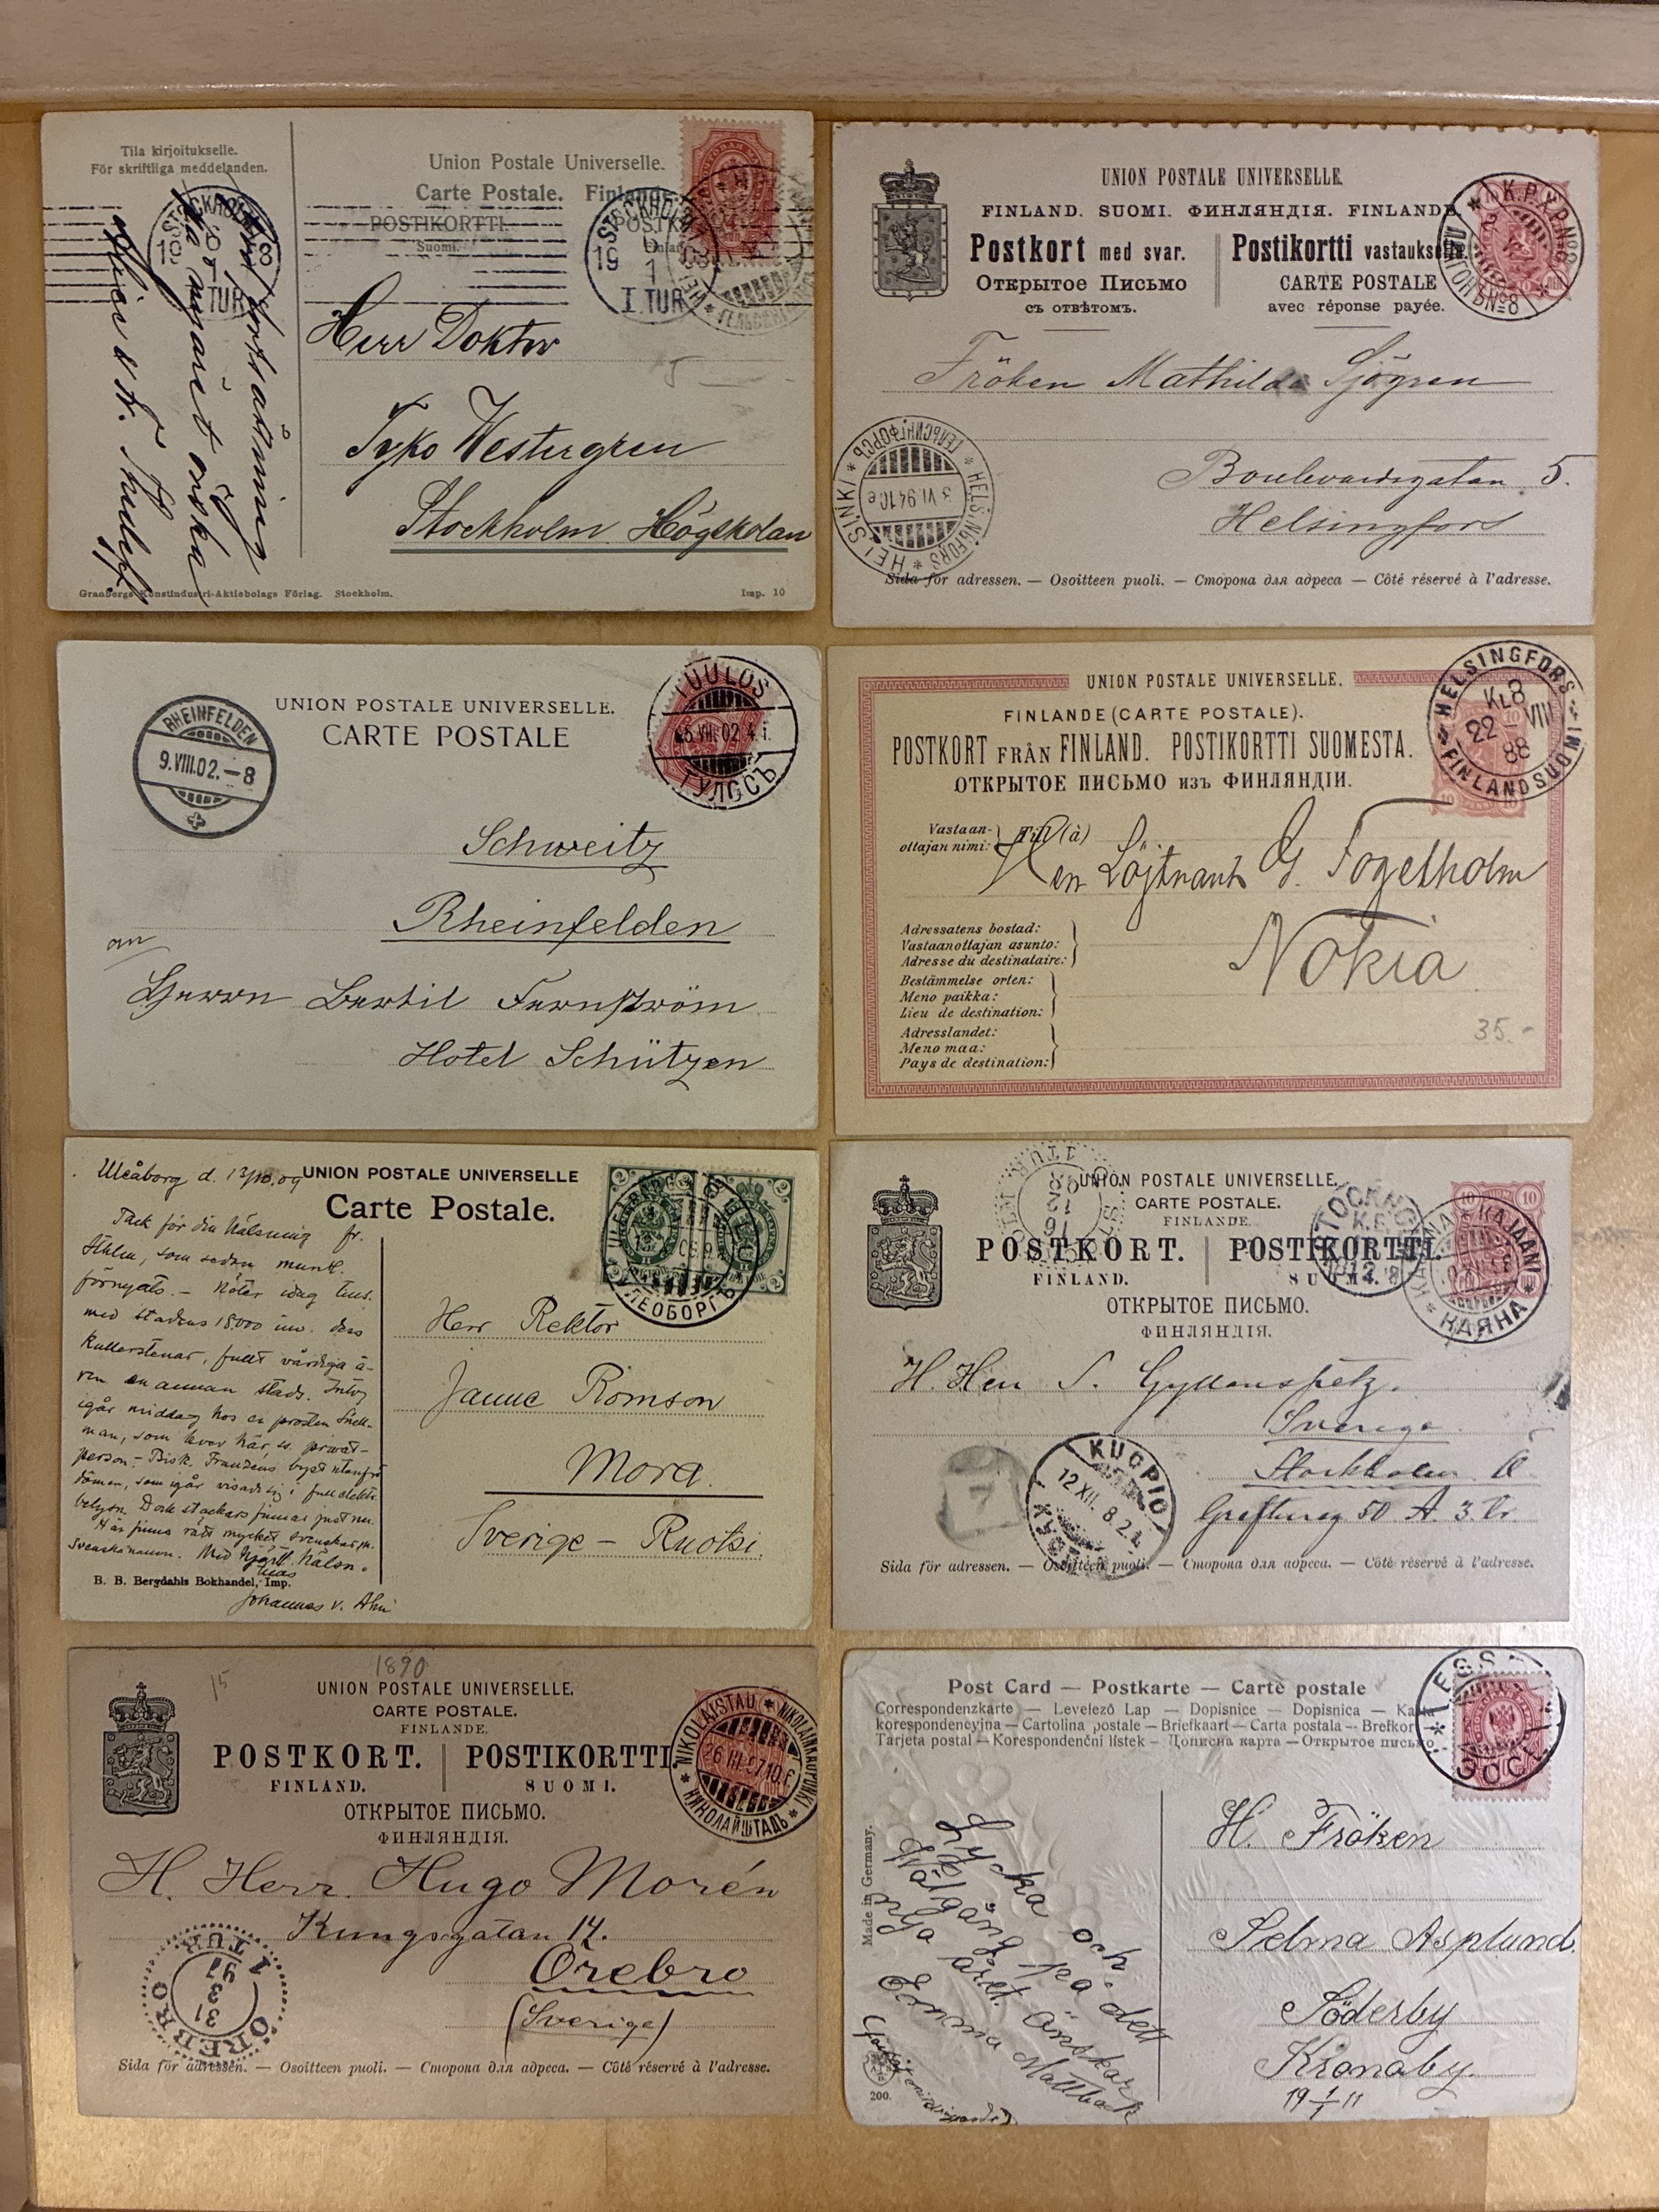 Tila kirjoitukselle.
För skriftliga meddelanden.
Union Postale Universelle.
Carte Postale. Finlande
POSTIKORTTI.
Suomi.
STOCKHOLM
19 1 08
1. TUR
Herr Doktor
Tyko Westergren
Stockholm. Högskolan
Granbergs Konstindustri-Aktiebolags Förlag. Stockholm.
Imp. 10
UNION POSTALE UNIVERSELLE.
FINLAND. SUOMI. ФИНЛЯНДІЯ. FINLANDE.
Postkort med svar.
Postikortti vastauksella.
Открытое Письмо
съ отвѣтомъ.
CARTE POSTALE
avec réponse payée.
K.P.X.P. No 8
Fröken Mathilda Sjögren
Boulevardsgatan 5.
Helsingfors
HELSINKI * HELSINGFORS * ГЕЛЬСИНГФОРСЪ
3 VI 94 10 e
Sida för adressen. — Osoitteen puoli. — Сторона для адреса — Côté réservé à l'adresse.
RHEINFELDEN
9.VIII.02.-8
UNION POSTALE UNIVERSELLE.
CARTE POSTALE
TUULOS
ТУЛОСЪ
Schweitz
Rheinfelden
an
Herrn Bertil Fernström
Hotel Schützen
UNION POSTALE UNIVERSELLE.
FINLANDE (CARTE POSTALE).
POSTKORT FRÅN FINLAND. POSTIKORTTI SUOMESTA.
ОТКРЫТОЕ ПИСЬМО изъ ФИНЛЯНДІИ.
HELSINGFORS
KL 8
22 VIII
88
FINLANDS
Vastaan-
ottajan nimi:
Till (à)
Löjtnant G. Fogelholm
Nokia
Adressatens bostad:
Vastaanottajan asunto:
Adresse du destinataire:
Bestämmelse orten:
Meno paikka:
Lieu de destination:
Adresslandet:
Meno maa:
Pays de destination:
35.-
Uleåborg d. 13/10.09
UNION POSTALE UNIVERSELLE
Carte Postale.
Tack för din hälsning fr.
Sthlm, som sedan munt.
förnyats. -
med stadens 18.000 inv. dess
kullerstenar, fullt värdiga ä-
ven en annan stads. Intog
igår middag hos en prosten Snell-
man, som bor här ss. privat-
person. - Bisk. Franzéns byst utanför
domen, som igår visade sig i full elektr.
belysn.
Här finns rätt mycket svenskar m.
svenska namn. Med hjärtl. hälsn.
Johannes v. Ahn
B. B. Bergdahls Bokhandel, Imp.
Herr Rektor
Janne Romson
Mora.
Sverige - Ruotsi.
UNION POSTALE UNIVERSELLE.
CARTE POSTALE.
FINLANDE.
POSTKORT. POSTIKORTTI.
FINLAND. SUOMI.
ОТКРЫТОЕ ПИСЬМО.
ФИНЛЯНДІЯ.
KAJAANI
КАЯНА
H. Herr S. Gyllenspetz.
Sverige
Stockholm Ö
Greftureg 50 A. 3. tr.
KUOPIO
12 XII.
Sida för adressen. — Osoitteen puoli. — Сторона для адреса. — Côté réservé à l'adresse.
15
1890
UNION POSTALE UNIVERSELLE.
CARTE POSTALE.
FINLANDE.
POSTKORT. POSTIKORTTI
FINLAND. SUOMI.
ОТКРЫТОЕ ПИСЬМО.
ФИНЛЯНДІЯ.
NIKOLAISTAD * NIKOLAINKAUPUNKI * НИКОЛАЙШТАДЪ
26 III 97 10 F.
H. Herr. Hugo Morén
Kungsgatan 14.
Örebro
(Sverige)
ÖREBRO
31 3 97
1 TUR
Sida för adressen. — Osoitteen puoli. — Сторона для адреса. — Côté réservé à l'adresse.
Post Card — Postkarte — Carte postale
Correspondenzkarte — Levelező Lap — Dopisnice — Dopisnica — Karta
korespondencyjna — Cartolina postale — Briefkaart — Carta postala — Brefkort
Tarjeta postal — Korespondenční lístek — Дописна карта — Открытое письмо
Made in Germany.
Lycka och
Välgång på dett
nya året. Önskar
Emma Mattback
200.
H. Fröken
Selma Asplund.
Söderby
Kronoby.
19 1/1 11